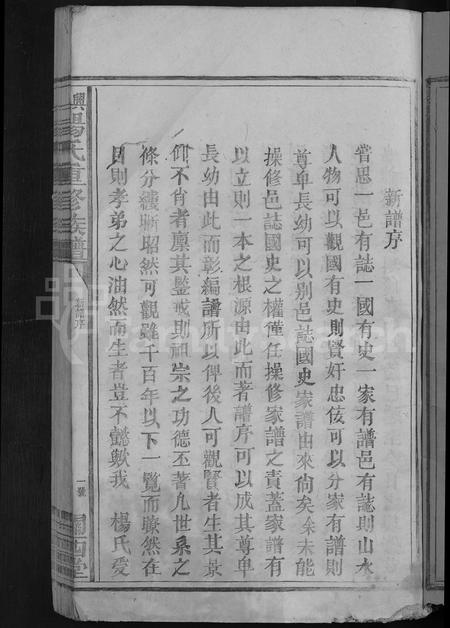 新譜序
嘗思一邑有誌一國有史一家有譜邑有誌則山水
人物可以觀國有史則賢奸忠佞可以分家有譜則
尊卑長幼可以別邑誌國史家譜由來尚矣余未能
操修邑誌國史之權僅任操修家譜之責蓋家譜有
以立則一本之根源由此而著譜序可以成其尊卑
長幼由此而彰編譜所以俾後人可觀賢者生其景
仰不肖者凛其鑒戒則祖崇之功德丕著凢世系之
條分縷晰昭然可觀雖千百年以下一覽而暸然在
目則孝弟之心油然而生者豈不懿歟我 楊氏爱
興 楊氏重修族譜
新譜序
一號